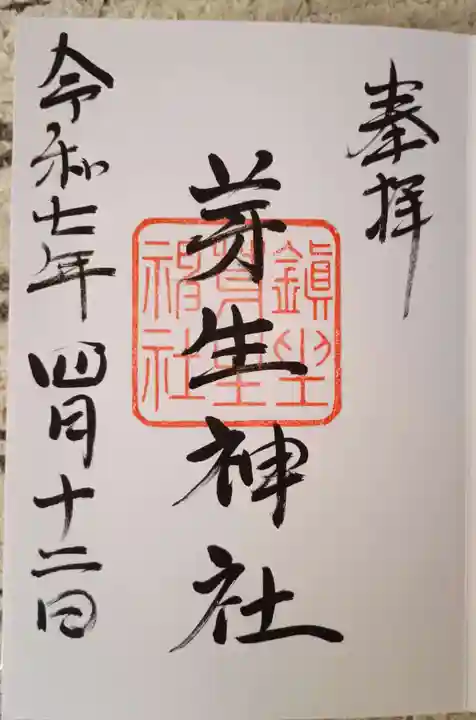 奉拝
芽生神社
鎮坐
芽生
神社
令和七年四月十二日